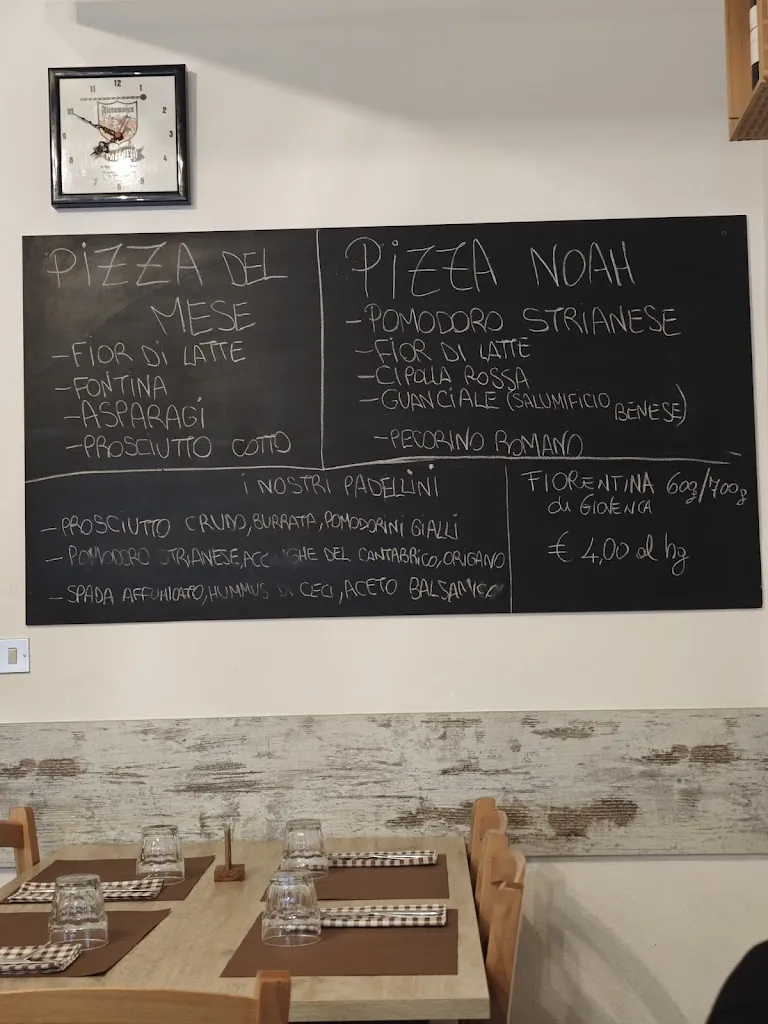 12
1
2
3
4
5
6
7
8
9
10
11
PIZZA DEL
MESE
-FIOR DI LATTE
-FONTINA
-ASPARAGI
-PROSCIUTTO COTTO
PIZZA NOAH
-POMODORO STRIANESE
-FIOR DI LATTE
-CIPOLLA ROSSA
-GUANCIALE (SALUMIFICIO BENESE)
-PECORINO ROMANO
I NOSTRI PADELLINI
- PROSCIUTTO CRUDO, BURRATA, POMODORINI GIALLI
- POMODORO STRIANESE, ACCIUGHE DEL CANTABRICO, ORIGANO
- SPADA AFFUMICATO, HUMMUS DI CECI, ACETO BALSAMICO
FIORENTINA 60g/700g
di GIOVENCA
€ 4,00 al hg